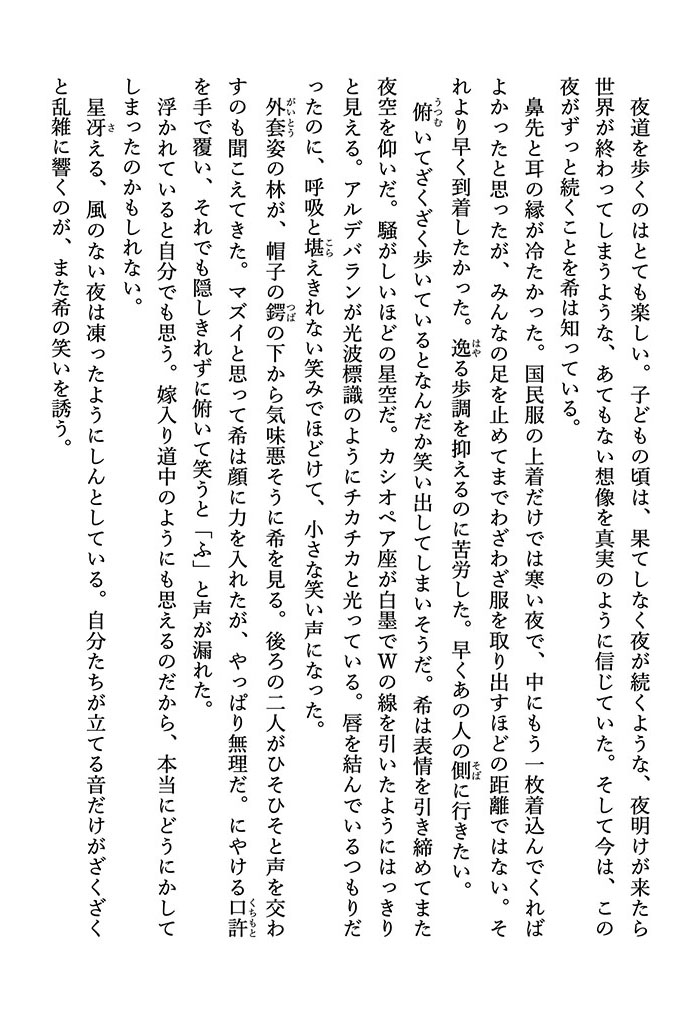 夜道を歩くのはとても楽しい。子どもの頃は、果てしなく夜が続くような、夜明けが来たら
世界が終わってしまうような、あてもない想像を真実のように信じていた。そして今は、この
夜がずっと続くことを希は知っている。
鼻先と耳の縁が冷たかった。国民服の上着だけでは寒い夜で、中にもう一枚着込んでくれば
よかったと思ったが、みんなの足を止めてまでわざわざ服を取り出すほどの距離ではない。そ
れより早く到着したかった。逸る歩調を抑えるのに苦労した。早くあの人の側に行きたい。
俯いてざくざく歩いているとなんだか笑い出してしまいそうだ。希は表情を引き締めてまた
夜空を仰いだ。騒がしいほどの星空だ。カシオペア座が白墨でWの線を引いたようにはっきり
と見える。アルデバランが光波標識のようにチカチカと光っている。唇を結んでいるつもりだ
ったのに、呼吸と堪えきれない笑みでほどけて、小さな笑い声になった。
外套姿の林が、帽子の鍔の下から気味悪そうに希を見る。後ろの二人がひそひそと声を交わ
すのも聞こえてきた。マズイと思って希は顔に力を入れたが、やっぱり無理だ。にやける口許
を手で覆い、それでも隠しきれずに俯いて笑うと「ふ」と声が漏れた。
浮かれていると自分でも思う。嫁入り道中のようにも思えるのだから、本当にどうにかして
しまったのかもしれない。
星冴える、風のない夜は凍ったようにしんとしている。自分たちが立てる音だけがざくざく
と乱雑に響くのが、また希の笑いを誘う。